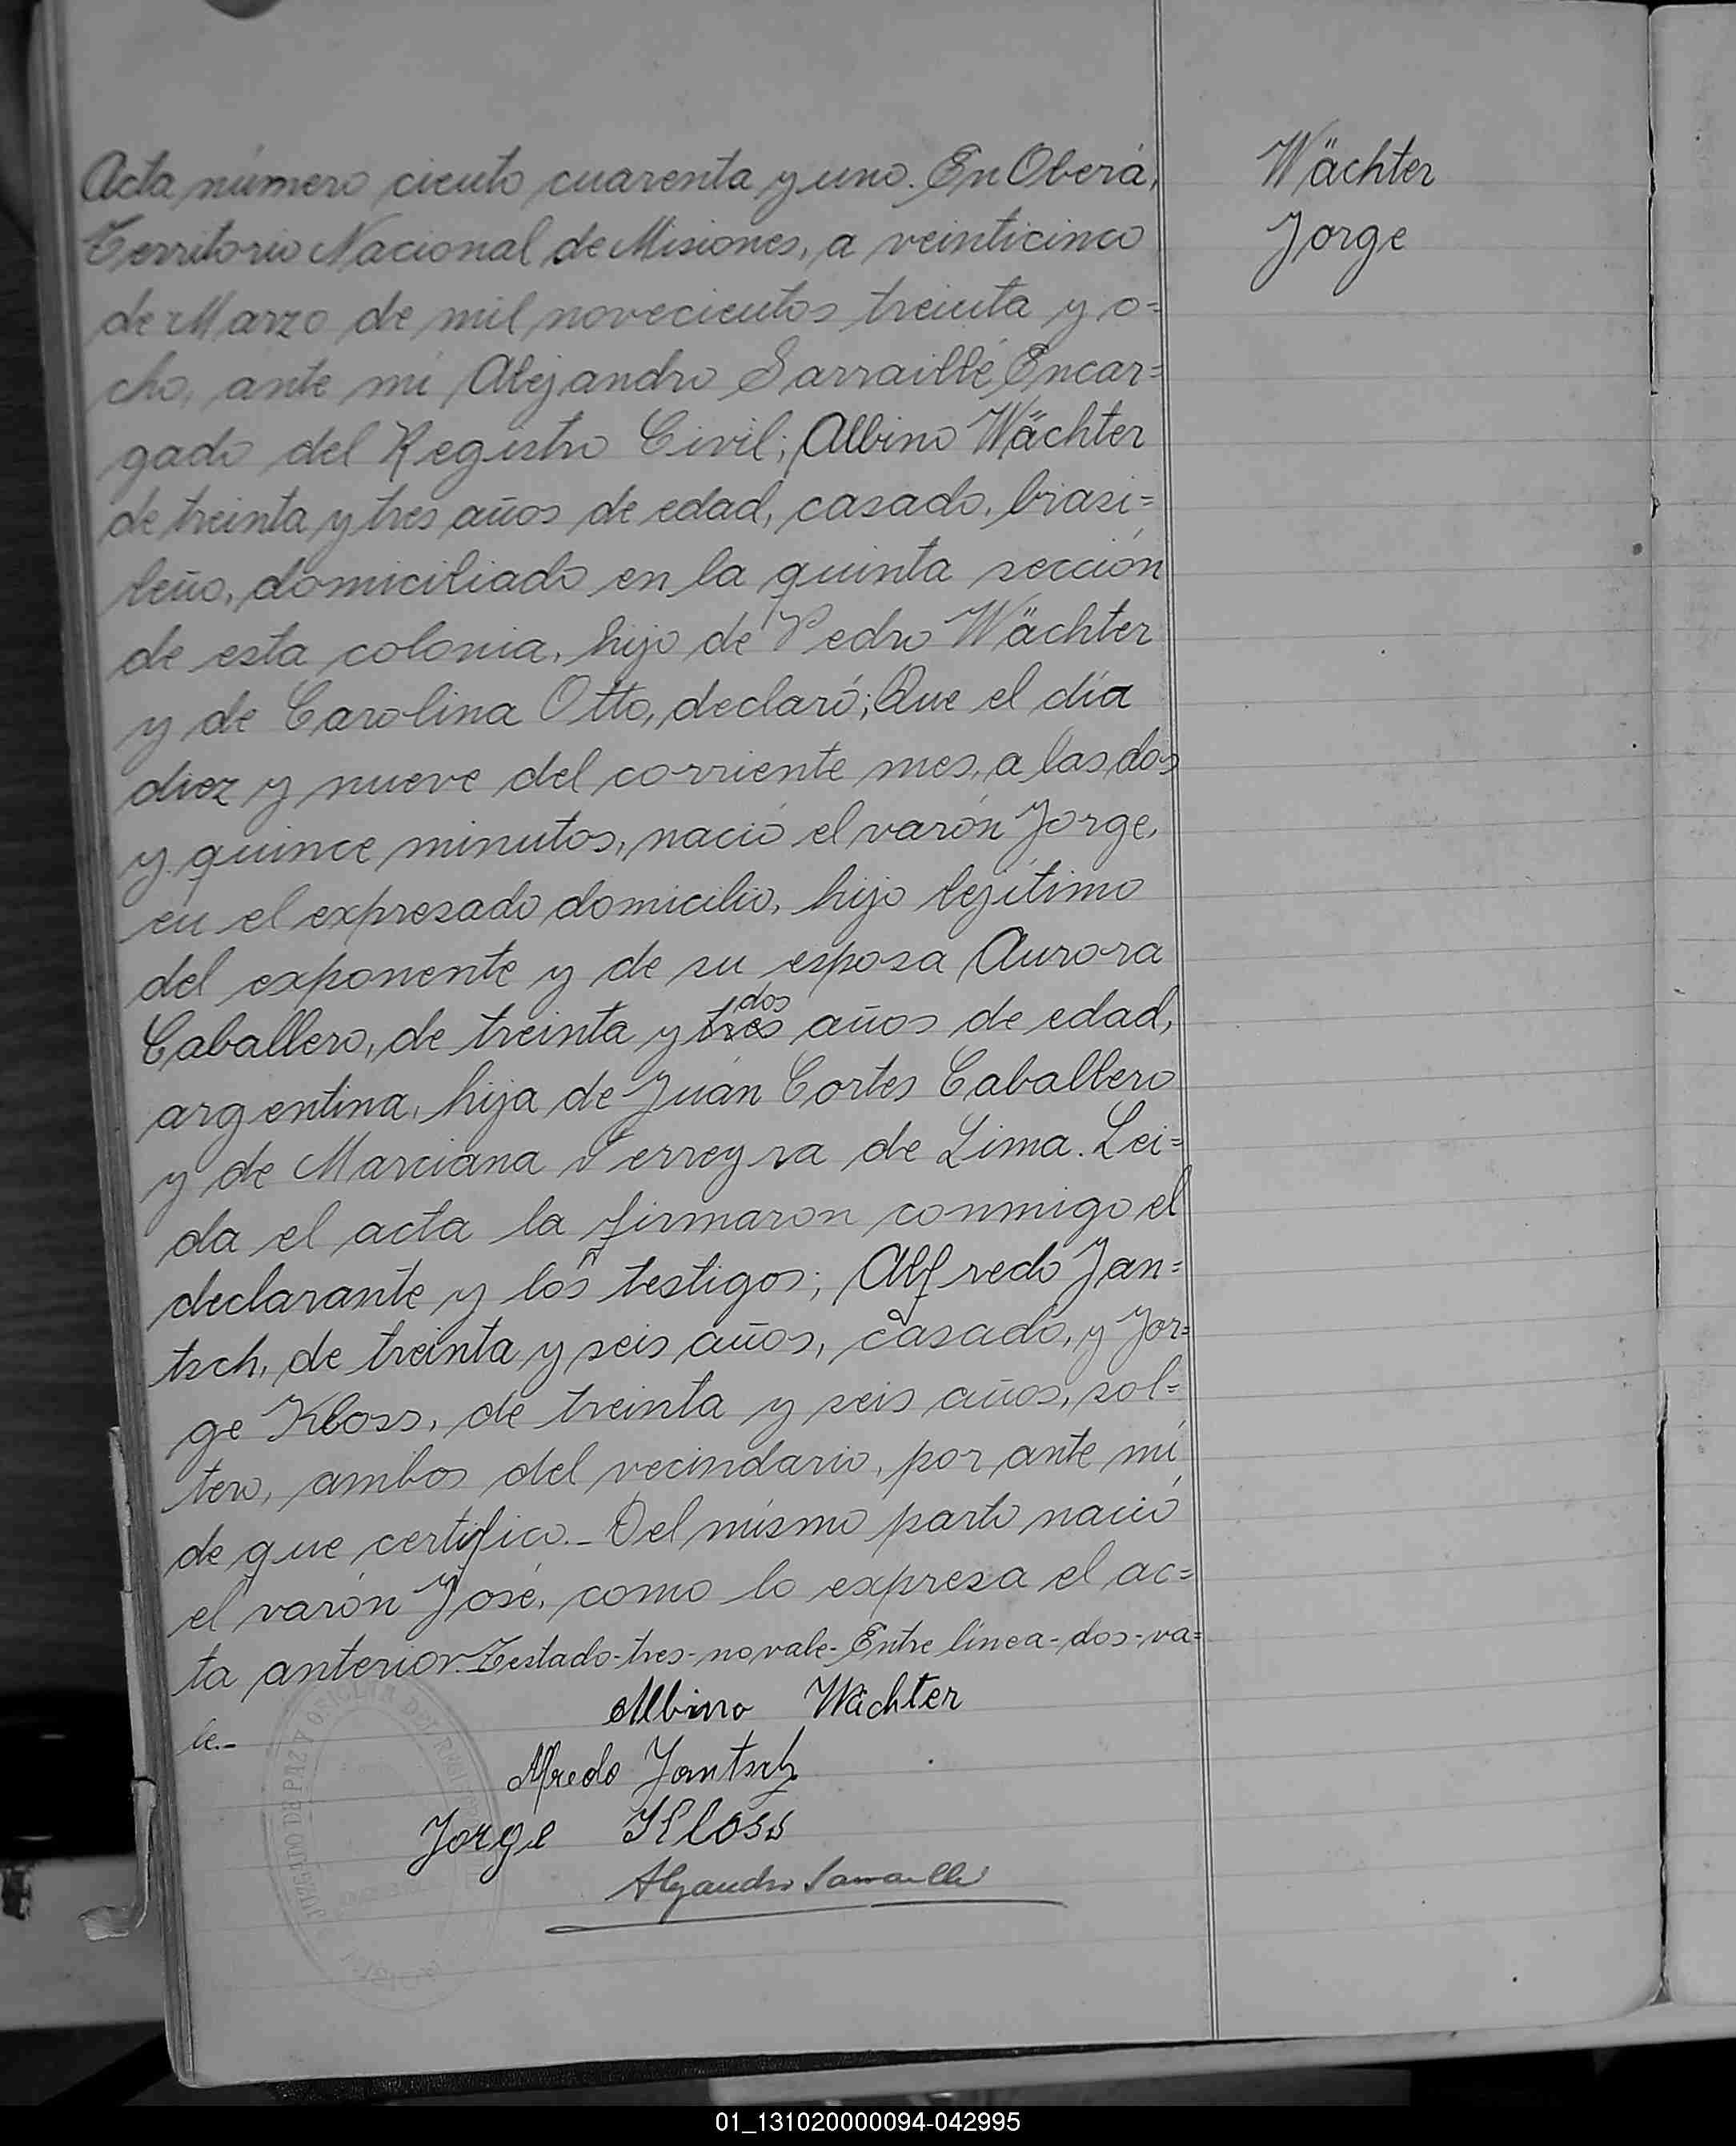 Acta número ciento cuarenta y uno. En Oberá,
Territorio Nacional de Misiones, a veinticinco
de Marzo de mil novecientos treinta y o=
cho, ante mi Alejandro Sarraillé, Encar=
gado del Registro Civil; Albino Wächter
de treinta y tres años de edad, casado, brasi=
leño, domiciliado en la quinta sección
de esta colonia, hijo de Pedro Wächter
y de Carolina Otto, declaró; Que el día
diez y nueve del corriente mes, a las dos
y quince minutos, nació el varón Jorge,
en el expresado domicilio, hijo lejítimo
del exponente y de su esposa Aurora
dos
Caballero, de treinta y tres años de edad,
argentina, hija de Juan Cortes Caballero
y de Marciana Ferreyra de Lima. Lei=
da el acta la firmaron conmigo el
declarante y los testigos; Alfredo Jan=
tsch, de treinta y seis años, casado, y Jor=
ge Kloss, de treinta y seis años, sol=
tero, ambos del vecindario, por ante mí
de que certifico._ Del mismo parto nació
el varón José, como lo expresa el ac=
ta anterior. Testado-tres-no vale-Entre línea-dos-va=
le.-
Albino Wächter
Alfredo Jantsch
Jorge Kloss
Alejandro Sarraillé
Wächter
Jorge
JUZGADO DE PAZ Y OFICINA DEL
01_131020000094-042995